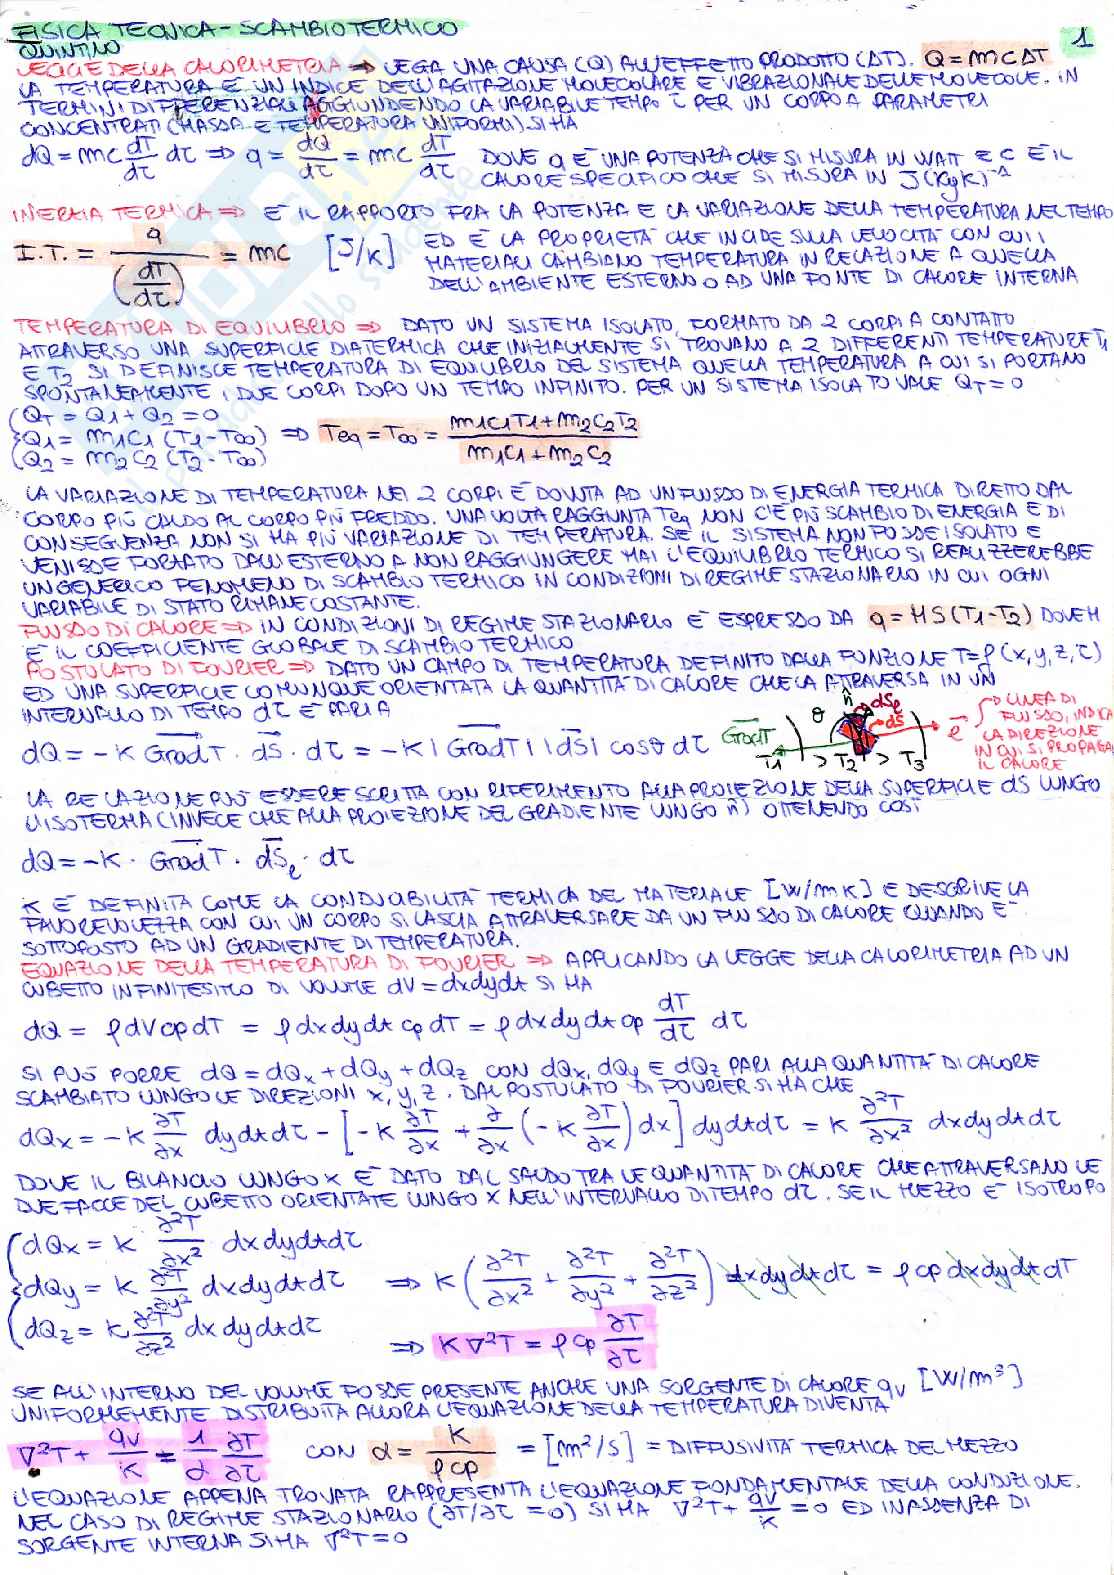 FISICA TECNICA - SCAMBIO TERMICO
QUINTINO
1
LEGGE DELLA CALORIMETRIA => LEGA UNA CAUSA (Q) ALL'EFFETTO PRODOTTO (ΔT). Q = mCΔT
LA TEMPERATURA È UN INDICE DELL'AGITAZIONE MOLECOLARE E VIBRAZIONALE DELLE MOLECOLE. IN
TERMINI DIFFERENZIALI AGGIUNGENDO LA VARIABILE TEMPO τ PER UN CORPO A PARAMETRI
CONCENTRATI (MASSA E TEMPERATURA UNIFORMI) SI HA
dQ = mc dT/dτ dτ => q = dQ/dτ = mc dT/dτ DOVE q È UNA POTENZA CHE SI MISURA IN WATT E C È IL
CALORE SPECIFICO CHE SI MISURA IN J(KgK)⁻¹
INERZIA TERMICA => È IL RAPPORTO FRA LA POTENZA E LA VARIAZIONE DELLA TEMPERATURA NEL TEMPO
I.T. = q/(dT/dτ) = mc [J/K] ED È LA PROPRIETÀ CHE INCIDE SULLA VELOCITÀ CON CUI I
MATERIALI CAMBIANO TEMPERATURA IN RELAZIONE A QUELLA
DELL'AMBIENTE ESTERNO O AD UNA FONTE DI CALORE INTERNA
TEMPERATURA DI EQUILIBRIO => DATO UN SISTEMA ISOLATO, FORMATO DA 2 CORPI A CONTATTO
ATTRAVERSO UNA SUPERFICIE DIATERMICA CHE INIZIALMENTE SI TROVANO A 2 DIFFERENTI TEMPERATURE T1
E T2 SI DEFINISCE TEMPERATURA DI EQUILIBRIO DEL SISTEMA QUELLA TEMPERATURA A CUI SI PORTANO
SPONTANEAMENTE I DUE CORPI DOPO UN TEMPO INFINITO. PER UN SISTEMA ISOLATO VALE QT = 0
QT = Q1 + Q2 = 0
Q1 = m1C1 (T1 - T∞) => Teq = T∞ = (m1C1T1 + m2C2T2)/(m1C1 + m2C2)
Q2 = m2C2 (T2 - T∞)
LA VARIAZIONE DI TEMPERATURA NEI 2 CORPI È DOVUTA AD UN FLUSSO DI ENERGIA TERMICA DIRETTO DAL
CORPO PIÙ CALDO AL CORPO PIÙ FREDDO. UNA VOLTA RAGGIUNTA Teq NON C'È PIÙ SCAMBIO DI ENERGIA E DI
CONSEGUENZA NON SI HA PIÙ VARIAZIONE DI TEMPERATURA. SE IL SISTEMA NON FOSSE ISOLATO E
VENISSE FORZATO DALL'ESTERNO A NON RAGGIUNGERE MAI L'EQUILIBRIO TERMICO SI REALIZZEREBBE
UN GENERICO FENOMENO DI SCAMBIO TERMICO IN CONDIZIONI DI REGIME STAZIONARIO IN CUI OGNI
VARIABILE DI STATO RIMANE COSTANTE.
FLUSSO DI CALORE => IN CONDIZIONI DI REGIME STAZIONARIO È ESPRESSO DA q = HS(T1-T2) DOVE H
È IL COEFFICIENTE GLOBALE DI SCAMBIO TERMICO
POSTULATO DI FOURIER => DATO UN CAMPO DI TEMPERATURA DEFINITO DALLA FUNZIONE T = f(x,y,z,τ)
ED UNA SUPERFICIE COMUNQUE ORIENTATA LA QUANTITÀ DI CALORE CHE LA ATTRAVERSA IN UN
INTERVALLO DI TEMPO dτ È PARI A
dQ = -K GradT · dS · dτ = -K |GradT| |dS| cosθ dτ
GradT θ n dSe dS e T1 > T2 > T3
LINEA DI
FLUSSO, INDICA
LA DIREZIONE
IN CUI SI PROPAGA
IL CALORE
LA RELAZIONE PUÒ ESSERE SCRITTA CON RIFERIMENTO ALLA PROIEZIONE DELLA SUPERFICIE dS LUNGO
L'ISOTERMA (INVECE CHE ALLA PROIEZIONE DEL GRADIENTE LUNGO n̂) OTTENENDO COSÌ
dQ = -K · GradT · dSe · dτ
K È DEFINITA COME LA CONDUCIBILITÀ TERMICA DEL MATERIALE [W/mK] E DESCRIVE LA
FAVOREVOLEZZA CON CUI UN CORPO SI LASCIA ATTRAVERSARE DA UN FLUSSO DI CALORE QUANDO È
SOTTOPOSTO AD UN GRADIENTE DI TEMPERATURA.
EQUAZIONE DELLA TEMPERATURA DI FOURIER => APPLICANDO LA LEGGE DELLA CALORIMETRIA AD UN
CUBETTO INFINITESIMO DI VOLUME dV = dxdydz SI HA
dQ = ρdVcpdT = ρdxdydz cpdT = ρdxdydz cp dT/dτ dτ
SI PUÒ PORRE dQ = dQx + dQy + dQz CON dQx, dQy E dQz PARI ALLA QUANTITÀ DI CALORE
SCAMBIATO LUNGO LE DIREZIONI x, y, z. DAL POSTULATO DI FOURIER SI HA CHE
dQx = -K ∂T/∂x dydzdτ - [-K ∂T/∂x + ∂/∂x (-K ∂T/∂x) dx] dydzdτ = K ∂²T/∂x² dxdydzdτ
DOVE IL BILANCIO LUNGO X È DATO DAL SALDO TRA LE QUANTITÀ DI CALORE CHE ATTRAVERSANO LE
DUE FACCE DEL CUBETTO ORIENTATE LUNGO X NELL'INTERVALLO DI TEMPO dτ. SE IL MEZZO È ISOTROPO
dQx = K ∂²T/∂x² dxdydzdτ
dQy = K ∂²T/∂y² dxdydzdτ => K (∂²T/∂x² + ∂²T/∂y² + ∂²T/∂z²) dxdydzdτ = ρcp dxdydz dT
dQz = K ∂²T/∂z² dxdydzdτ
=> K∇²T = ρcp ∂T/∂τ
SE ALL'INTERNO DEL VOLUME FOSSE PRESENTE ANCHE UNA SORGENTE DI CALORE qv [W/m³]
UNIFORMEMENTE DISTRIBUITA ALLORA L'EQUAZIONE DELLA TEMPERATURA DIVENTA
∇²T + qv/K = 1/α ∂T/∂τ CON α = K/ρcp = [m²/s] = DIFFUSIVITÀ TERMICA DEL MEZZO
L'EQUAZIONE APPENA TROVATA RAPPRESENTA L'EQUAZIONE FONDAMENTALE DELLA CONDUZIONE.
NEL CASO DI REGIME STAZIONARIO (∂T/∂τ = 0) SI HA ∇²T + qv/K = 0 ED IN ASSENZA DI
SORGENTE INTERNA SI HA ∇²T = 0